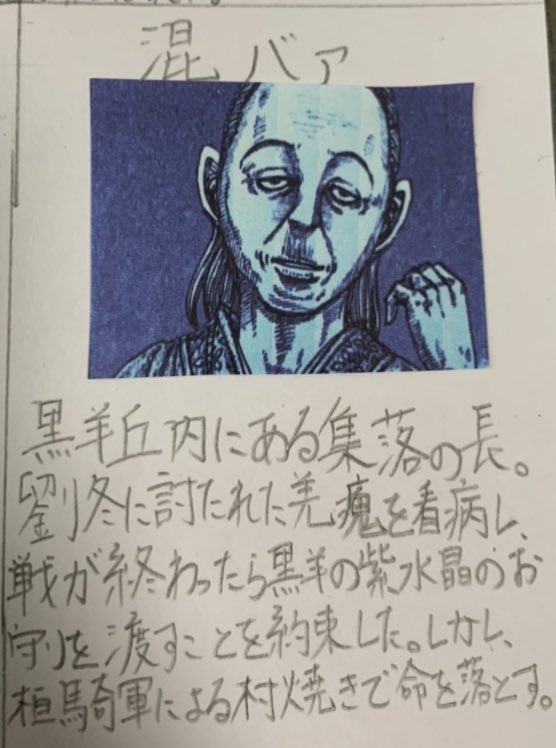 混バア
黒羊丘内にある集落の長。
劉冬に討たれた羌瘣を看病し、
戦が終わったら黒羊の紫水晶のお
守りを渡すことを約束した。しかし、
桓騎軍による村焼きで命を落とす。